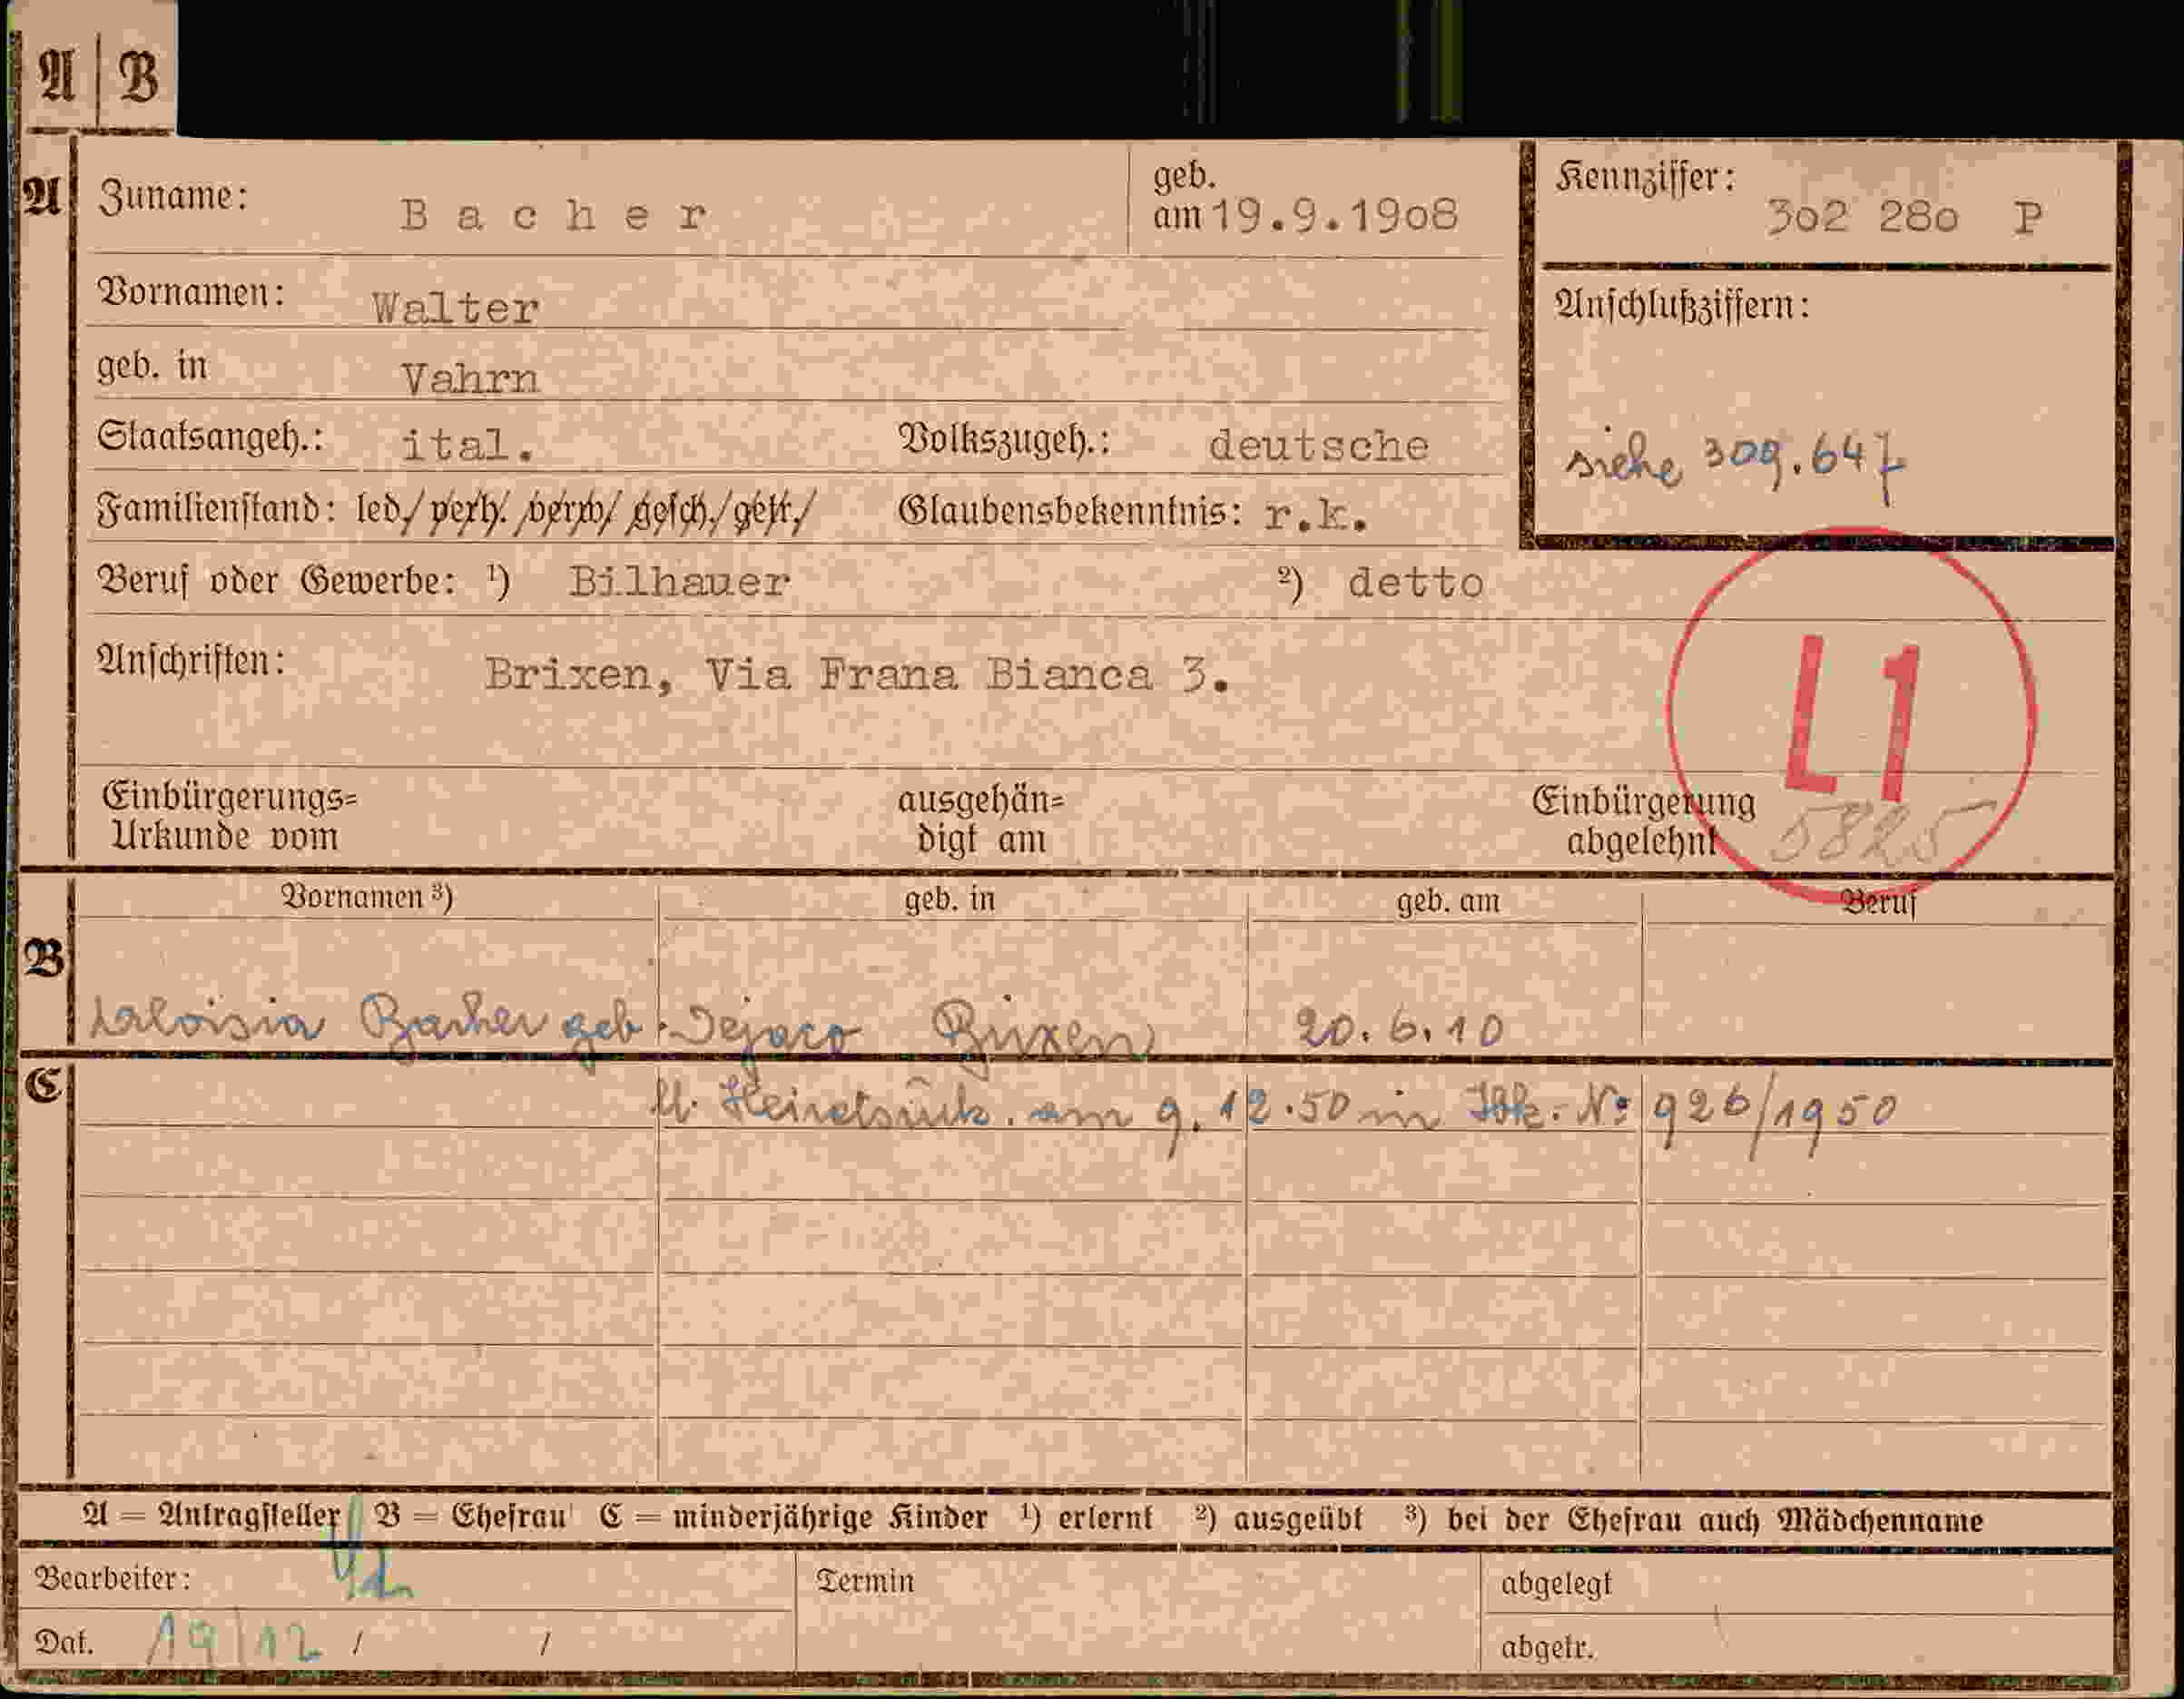 A | B
A Zuname: Bacher geb. am 19.9.1908 Kennziffer: 302 280 P
Vornamen: Walter Anschlußziffern:
geb. in Vahrn
Staatsangeh.: ital. Volkszugeh.: deutsche siehe 309.647
Familienstand: led./ verh. /verw./ gesch./getr./ Glaubensbekenntnis: r.k.
Beruf oder Gewerbe: ¹) Bilhauer ²) detto
Anschriften: Brixen, Via Frana Bianca 3.
L1
Einbürgerungs= Urkunde vom ausgehän= digt am Einbürgerung abgelehnt 5825
Vornamen ³) geb. in geb. am Beruf
B Aloisia Bacher geb. Dejaco Brixen 20.6.10
C am 9.12.50 in Ibk. No 926/1950
A = Antragsteller B = Ehefrau C = minderjährige Kinder ¹) erlernt ²) ausgeübt ³) bei der Ehefrau auch Mädchenname
Bearbeiter: Termin abgelegt
Dat. 19/12 / / abgetr.